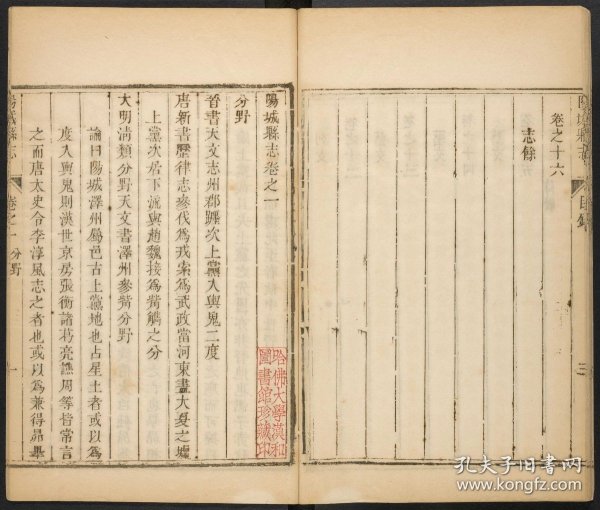 卷之十六
志餘
三
陽城縣志卷之一
分野
晉書天文志州郡躔次上黨入輿鬼二度
唐新書歷律志參伐爲戎索爲武政當河東盡大夏之墟
上黨次居下流與趙魏接爲觜觿之分
大明清類分野天文書澤州參觜分野
論曰陽城澤州屬邑古上黨地也占星土者或以爲
度入輿鬼則漢世京房張衡諸葛亮譙周等皆常言
之而唐太史令李淳風志之者也或以爲兼得昴畢
陽城縣志
卷之一
分野
一
哈佛大學漢和
圖書館珍藏印
孔夫子旧书网
www.kongfz.com